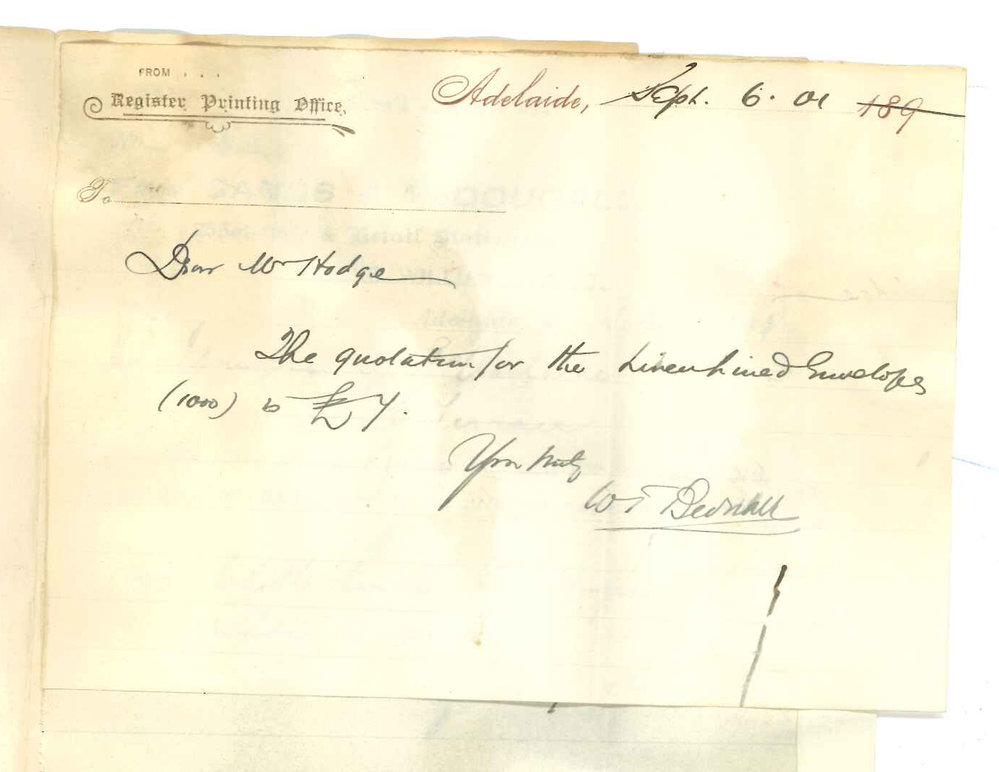 FROM . . .
Register Printing Office,
Adelaide, Sept. 6. 01 189
To
Dear Mr Hodge
The quotation for the Linen Lined Envelopes
(1000) is £7.
Yrs truly
W T Bednall